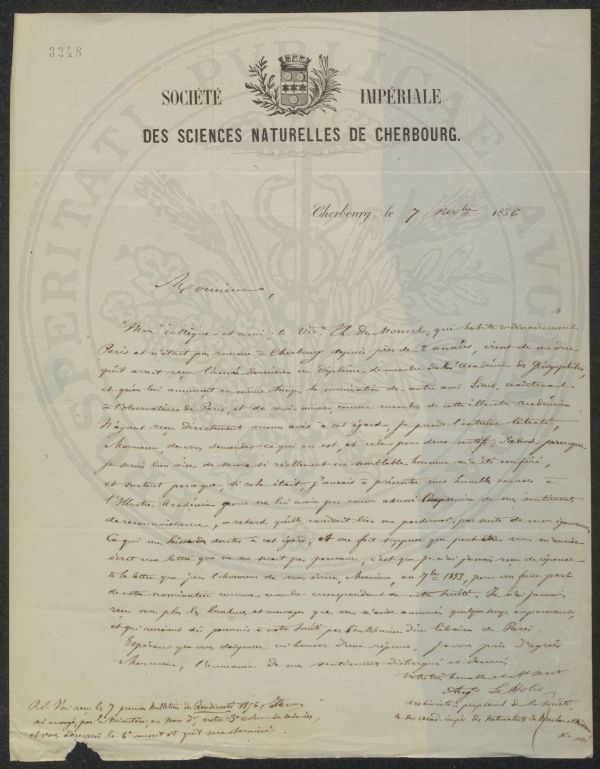 3248
SOCIÉTÉ IMPÉRIALE
DES SCIENCES NATURELLES DE CHERBOURG.
Cherbourg, le 7 Novbre 1856
Monsieur,
Mon collègue et ami le Victe Th. Du Moncel, qui habite ordinairement
Paris et n'était pas revenu à Cherbourg depuis près de 2 années, vient de me dire
qu'il avait reçu l'hiver dernier un diplôme de membre de l'Académie des
et qu'on lui annonçait en même temps la nomination de notre ami Liais, maintenant
à l'observatoire de Paris, et de moi-même, comme membres de cette illustre Académie.
N'ayant reçu directement aucun avis à cet égard, je prends l'extrême liberté,
Monsieur, de vous demander ce qui en est et cela pour deux motifs, d'abord parceque
je serais bien aise de savoir si réellement un semblable honneur m'a été conféré,
et surtout parceque, si cela était, j'aurais à présenter mes humbles excuses à
l'Illustre Académie pour ne lui avoir pas encore adressé l'expression de mes sentiments
de reconnaissance, retard qu'elle voudrait bien me pardonner, par suite de mon ignorance.
Ce qui me laisse des doutes à cet égard, et me fait supposer que peut-être vous m'auriez
écrit une lettre qui ne me serait pas parvenue, c'est que je n'ai jamais reçu de réponse
à la lettre que j'eus l'honneur de vous écrire, Monsieur, en 7bre 1853, pour vous faire part
de votre nomination comme membre correspondant de notre Société. Je n'ai jamais
reçu non plus les brochures et ouvrages que vous m'aviez annoncés quelque temps auparavant,
et qui devaient parvenir à notre Société par l'entremise d'un libraire de Paris.
Espérant que vous daignerez m'honorer d'une réponse, je vous prie d'agréer
Monsieur, l'assurance de mes sentiments distingués et dévoués
Votre très humble et obt servt
Augte Le Jolis
archiviste perpétuel de la Société,
m. des acad. impér. des naturalistes de
P.S. J'ai reçu les 7 premiers bulletins de 1856
ai envoyé, par le Ministère, notre 3e volume de mémoires,
et vous adresserai le 4e aussitôt qu'il sera terminé.